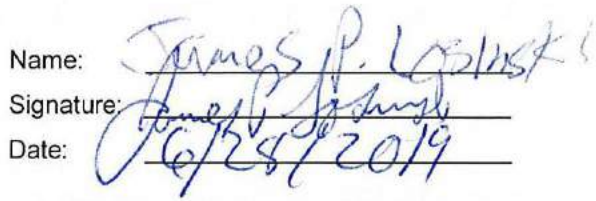 Name: James P. Losinski
Signature: James P. Losinski
Date: 6/28/2019